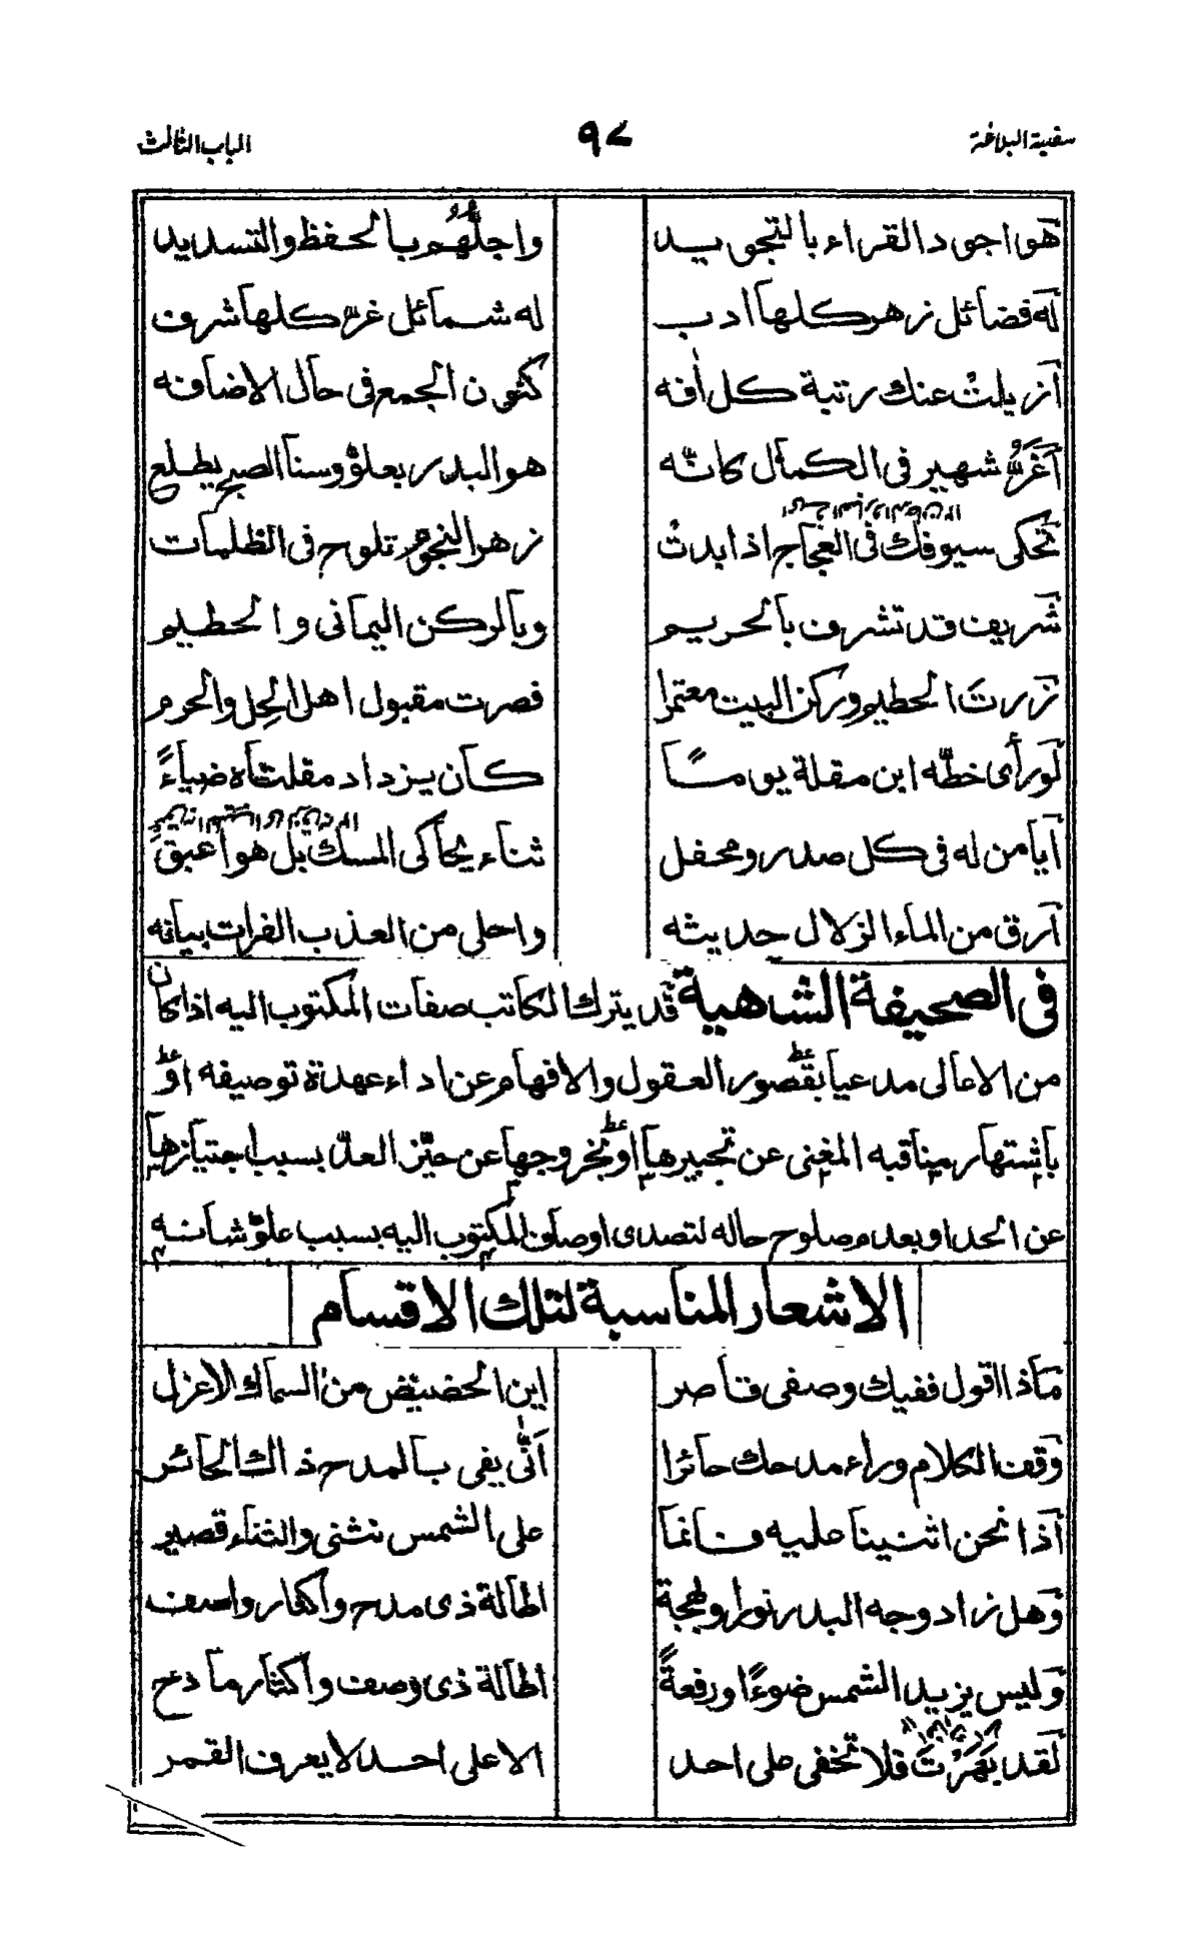 سفينة البلاغة ٩٧ الباب الثالث
هو اجود القراء بالتجويد واجلّهُم بالحفظ والتسديد
له فضائل زهر كلها ادب له شمائل غر كلها شرف
ازيلتْ عنك رتبة كل اٰفه كنون الجمع في حال الاضافه
اَغَرُّ شهير في الكمال كانّه هو البدر يعلو وسنا الصبح يطلع
تحكى سيوفك في العجاج اذا بدتْ زهر النجوم تلوح في الظلمات
شريف قد تشرف بالحريم وبالركن اليماني والحطيم
زرتَ الحطيم وركن البيت معتمرا فصرت مقبول اهل الحِل والحرم
لو رأى خطّه ابن مقلة يوماً كان يزداد مقلتاه ضياءً
ايا من له في كل صدر ومحفل ثناء يحاكى المسك بل هو اعبق
ارق من الماء الزلال حديثه واحلى من العذب الفرات بيانه
في الصحيفة الشاهية قد يترك الكاتب صفات المكتوب اليه اذا كان
من الاعالى مدعيا بقصور العقول والافهام عن اداء عهدة توصيفه او
باشتهار مناقبه المغنى عن تحبيرها او بخروجها عن حيّز العدّ بسبب اجتيازها
عن الحد او بعدم صلوح حاله لتصدى اوصاف المكتوب اليه بسبب علوّ شانه
الاشعار المناسبة لتلك الاقسام
ماذا اقول ففيك وصفى قاصر اين الحضيض من السماك الاعزل
وقف الكلام وراء مدحك حائرا اَنّٰى يفى بالمدح ذاك الحائر
اذا نحن اثنينا عليه فانما على الشمس نثنى والثناء قصير
وهل زاد وجه البدر نورا وبهجة اطالة ذى مدح واكثار واصف
وليس يزيد الشمس ضوءًا ورفعةً اطالة ذى وصف واكثار مادح
لقد بَهَرْتَ فلا تخفى على احد الا على احد لا يعرف القمر